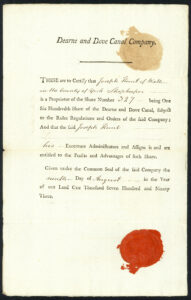 Dearne and Dove Canal Company.
THESE are to Certify that Joseph Hunt of
in the County of York
is a Proprietor of the Share Number 337 being One
Six Hundredth Share of the Dearne and Dove Canal, subject
to the Rules Regulations and Orders of the said Company;
And that the said Joseph Hunt
his Executors Administrators and Assigns is and are
entitled to the Profits and Advantages of such Share.
Given under the Common Seal of the said Company the
Day of August in the Year
of our Lord One Thousand Seven Hundred and Ninety
Three.